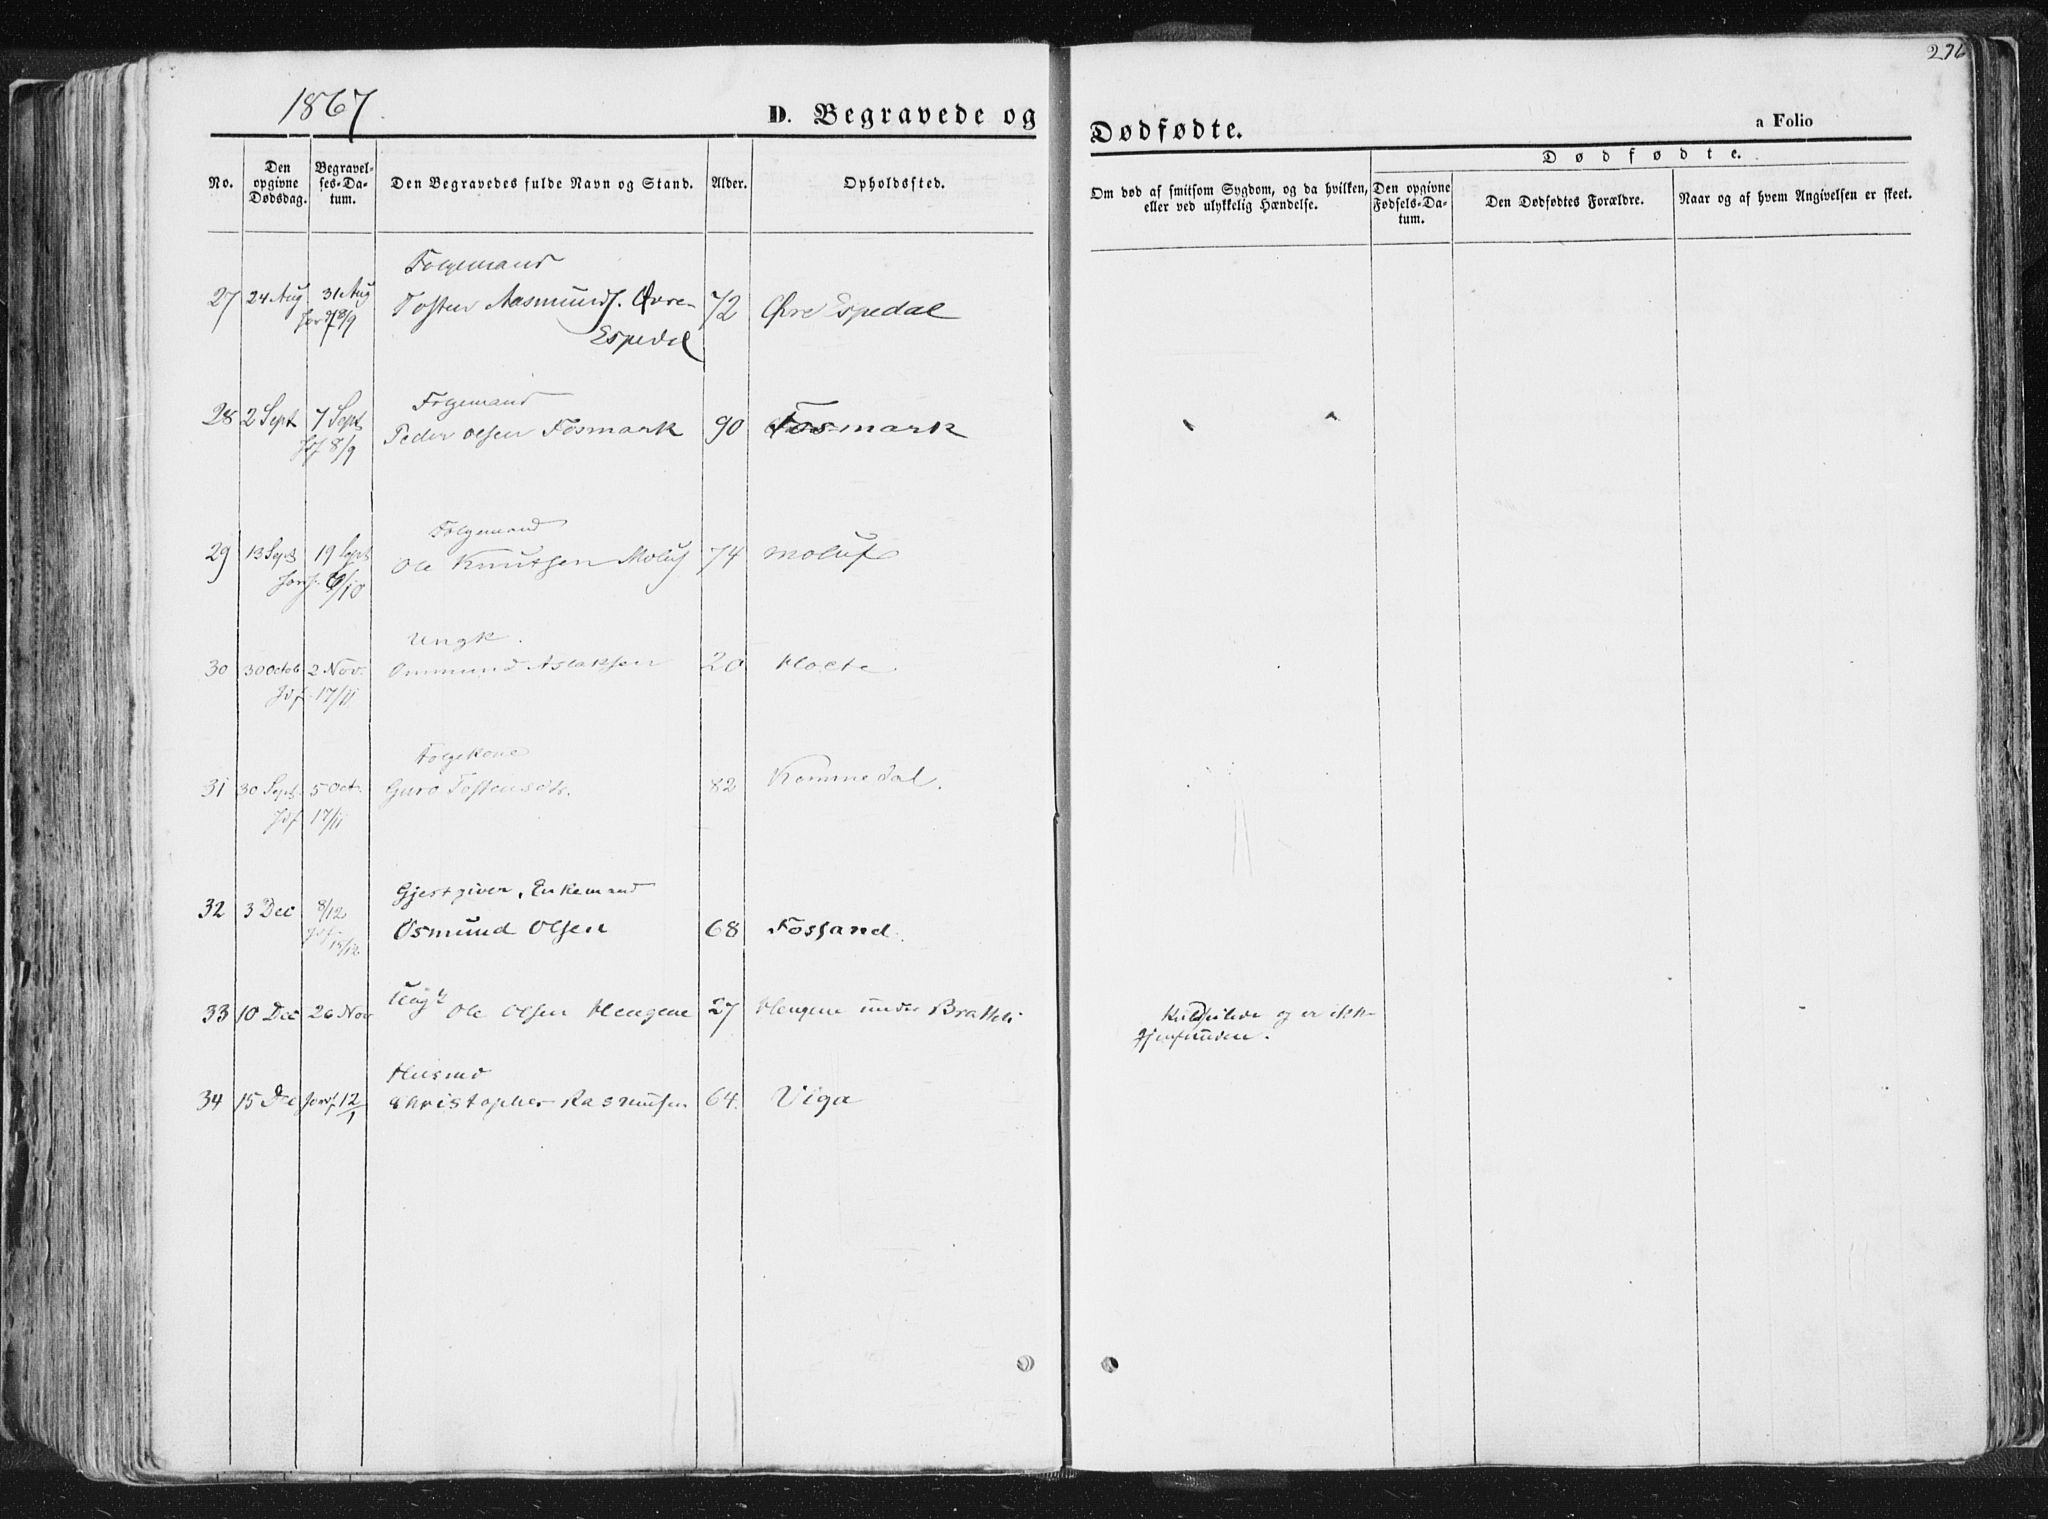 1867.
D. Begravede og
Dødfødte.
a Folio
276
No.
Den opgivne Dødsdag.
Begravelses-Datum.
Den Begravedes fulde Navn og Stand.
Alder.
Opholdssted.
Om død af smitsom Sygdom, og da hvilken, eller ved ulykkelig Hændelse.
Dødfødte.
Den opgivne Fødsels-Datum.
Den Dødfødtes Forældre.
Naar og af hvem Angivelsen er skeet.
Folgemand
27 24 Aug 31 Aug Tosten Aasmunds. Øvre- 72 Øvre Espedal
Jordf 8/9 Espedal
Folgemand
28 2 Sept 7 Sept Peder Olsen Fosmark 90 Fosmark
Jf 8/9
Folgemand
29 13 Sept 19 Sept Ole Knutsen Moluf 74 Moluf
Jordf. 6/10
Ungk.
30 30 Octob 2 Nov. Ommund Aslaksen 20 Holte
Jdf. 17/11
Folgekone
31 30 Sept. 5 Oct. Guro Tostensdtr. 82 Kommedal.
Jdf. 17/11
Gjestgiver, Enkemand
32 3 Dec 8/12 Osmund Olsen 68 Fossand.
Jdf. 15/12
33 10 Dec 26 Nov Ungk Ole Olsen Hengene 27 Hengene under Bratteli
og er ikke
gjenfunden.
Husmd
34 15 Dec Jordf. 12/1 Christopher Rasmusen 64. Viga